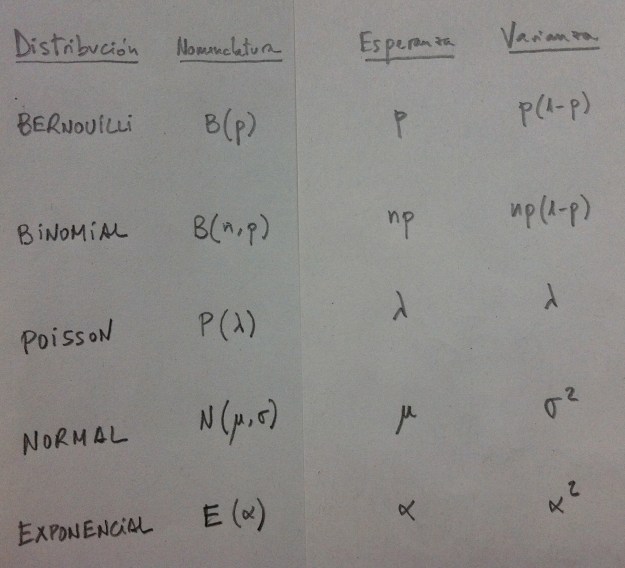 Distribución Nomenclatura Esperanza Varianza
BERNOUILLI B(p) p p(1-p)
BiNOMiAL B(n,p) np np(1-p)
POISSON P(λ) λ λ
NORMAL N(μ,σ) μ σ²
EXPONENCIAL E(α) α α²